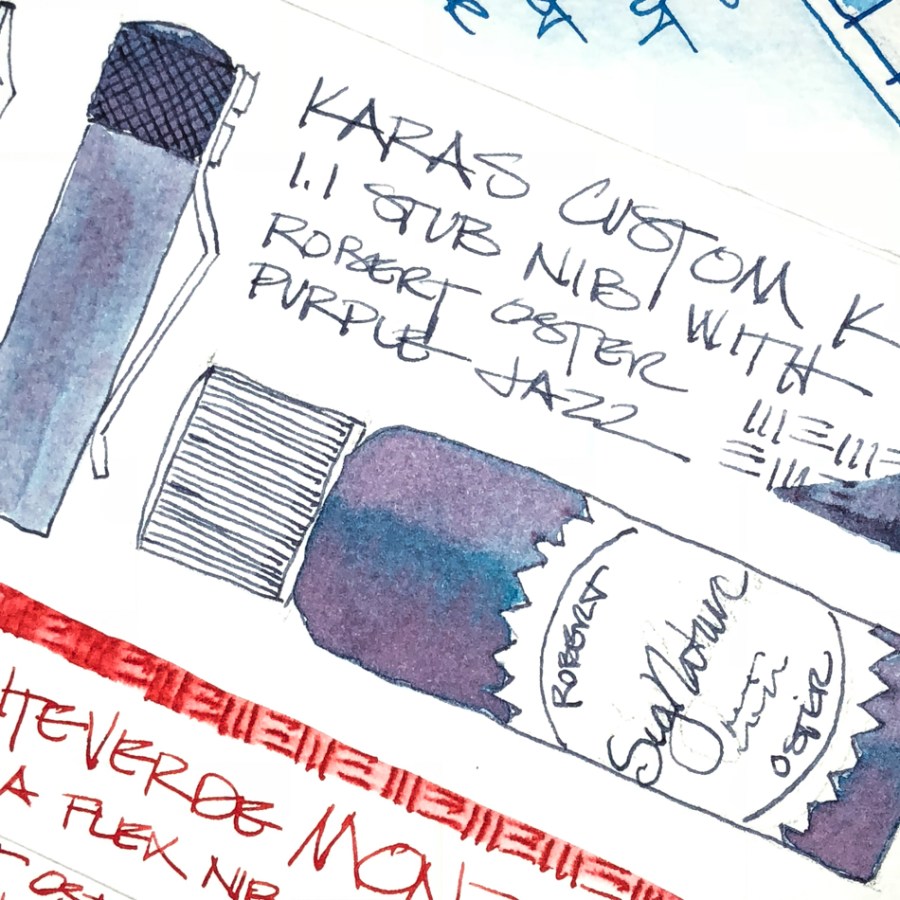 KARAS CUSTOM K
1.1 STUB NIB WITH
ROBERT OSTER
PURPLE JAZZ
ROBERT
Signature
OSTER
ITEVERDE MON
A FLEX NIB